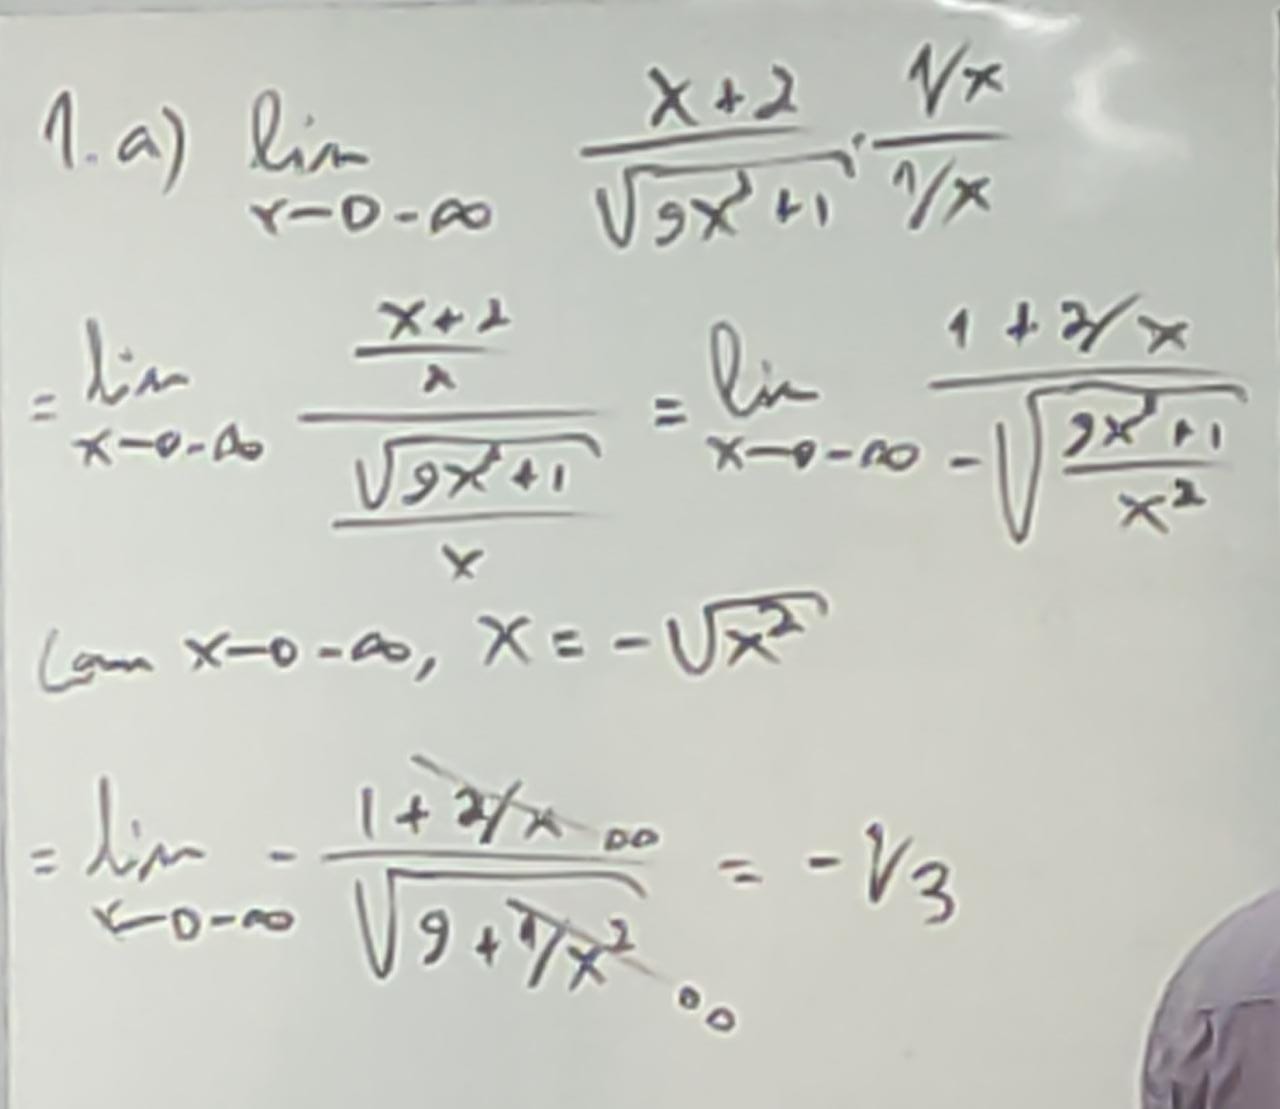 1. a) lim x→-∞ (x+2)/(√(9x²+1)) · (1/x)/(1/x)
= lim x→-∞ ((x+2)/x)/((√(9x²+1))/x) = lim x→-∞ (1+2/x)/(-√((9x²+1)/x²))
Com x→-∞, x = -√(x²)
= lim x→-∞ - (1+2/x →0)/(√(9+1/x² →0)) = -1/3